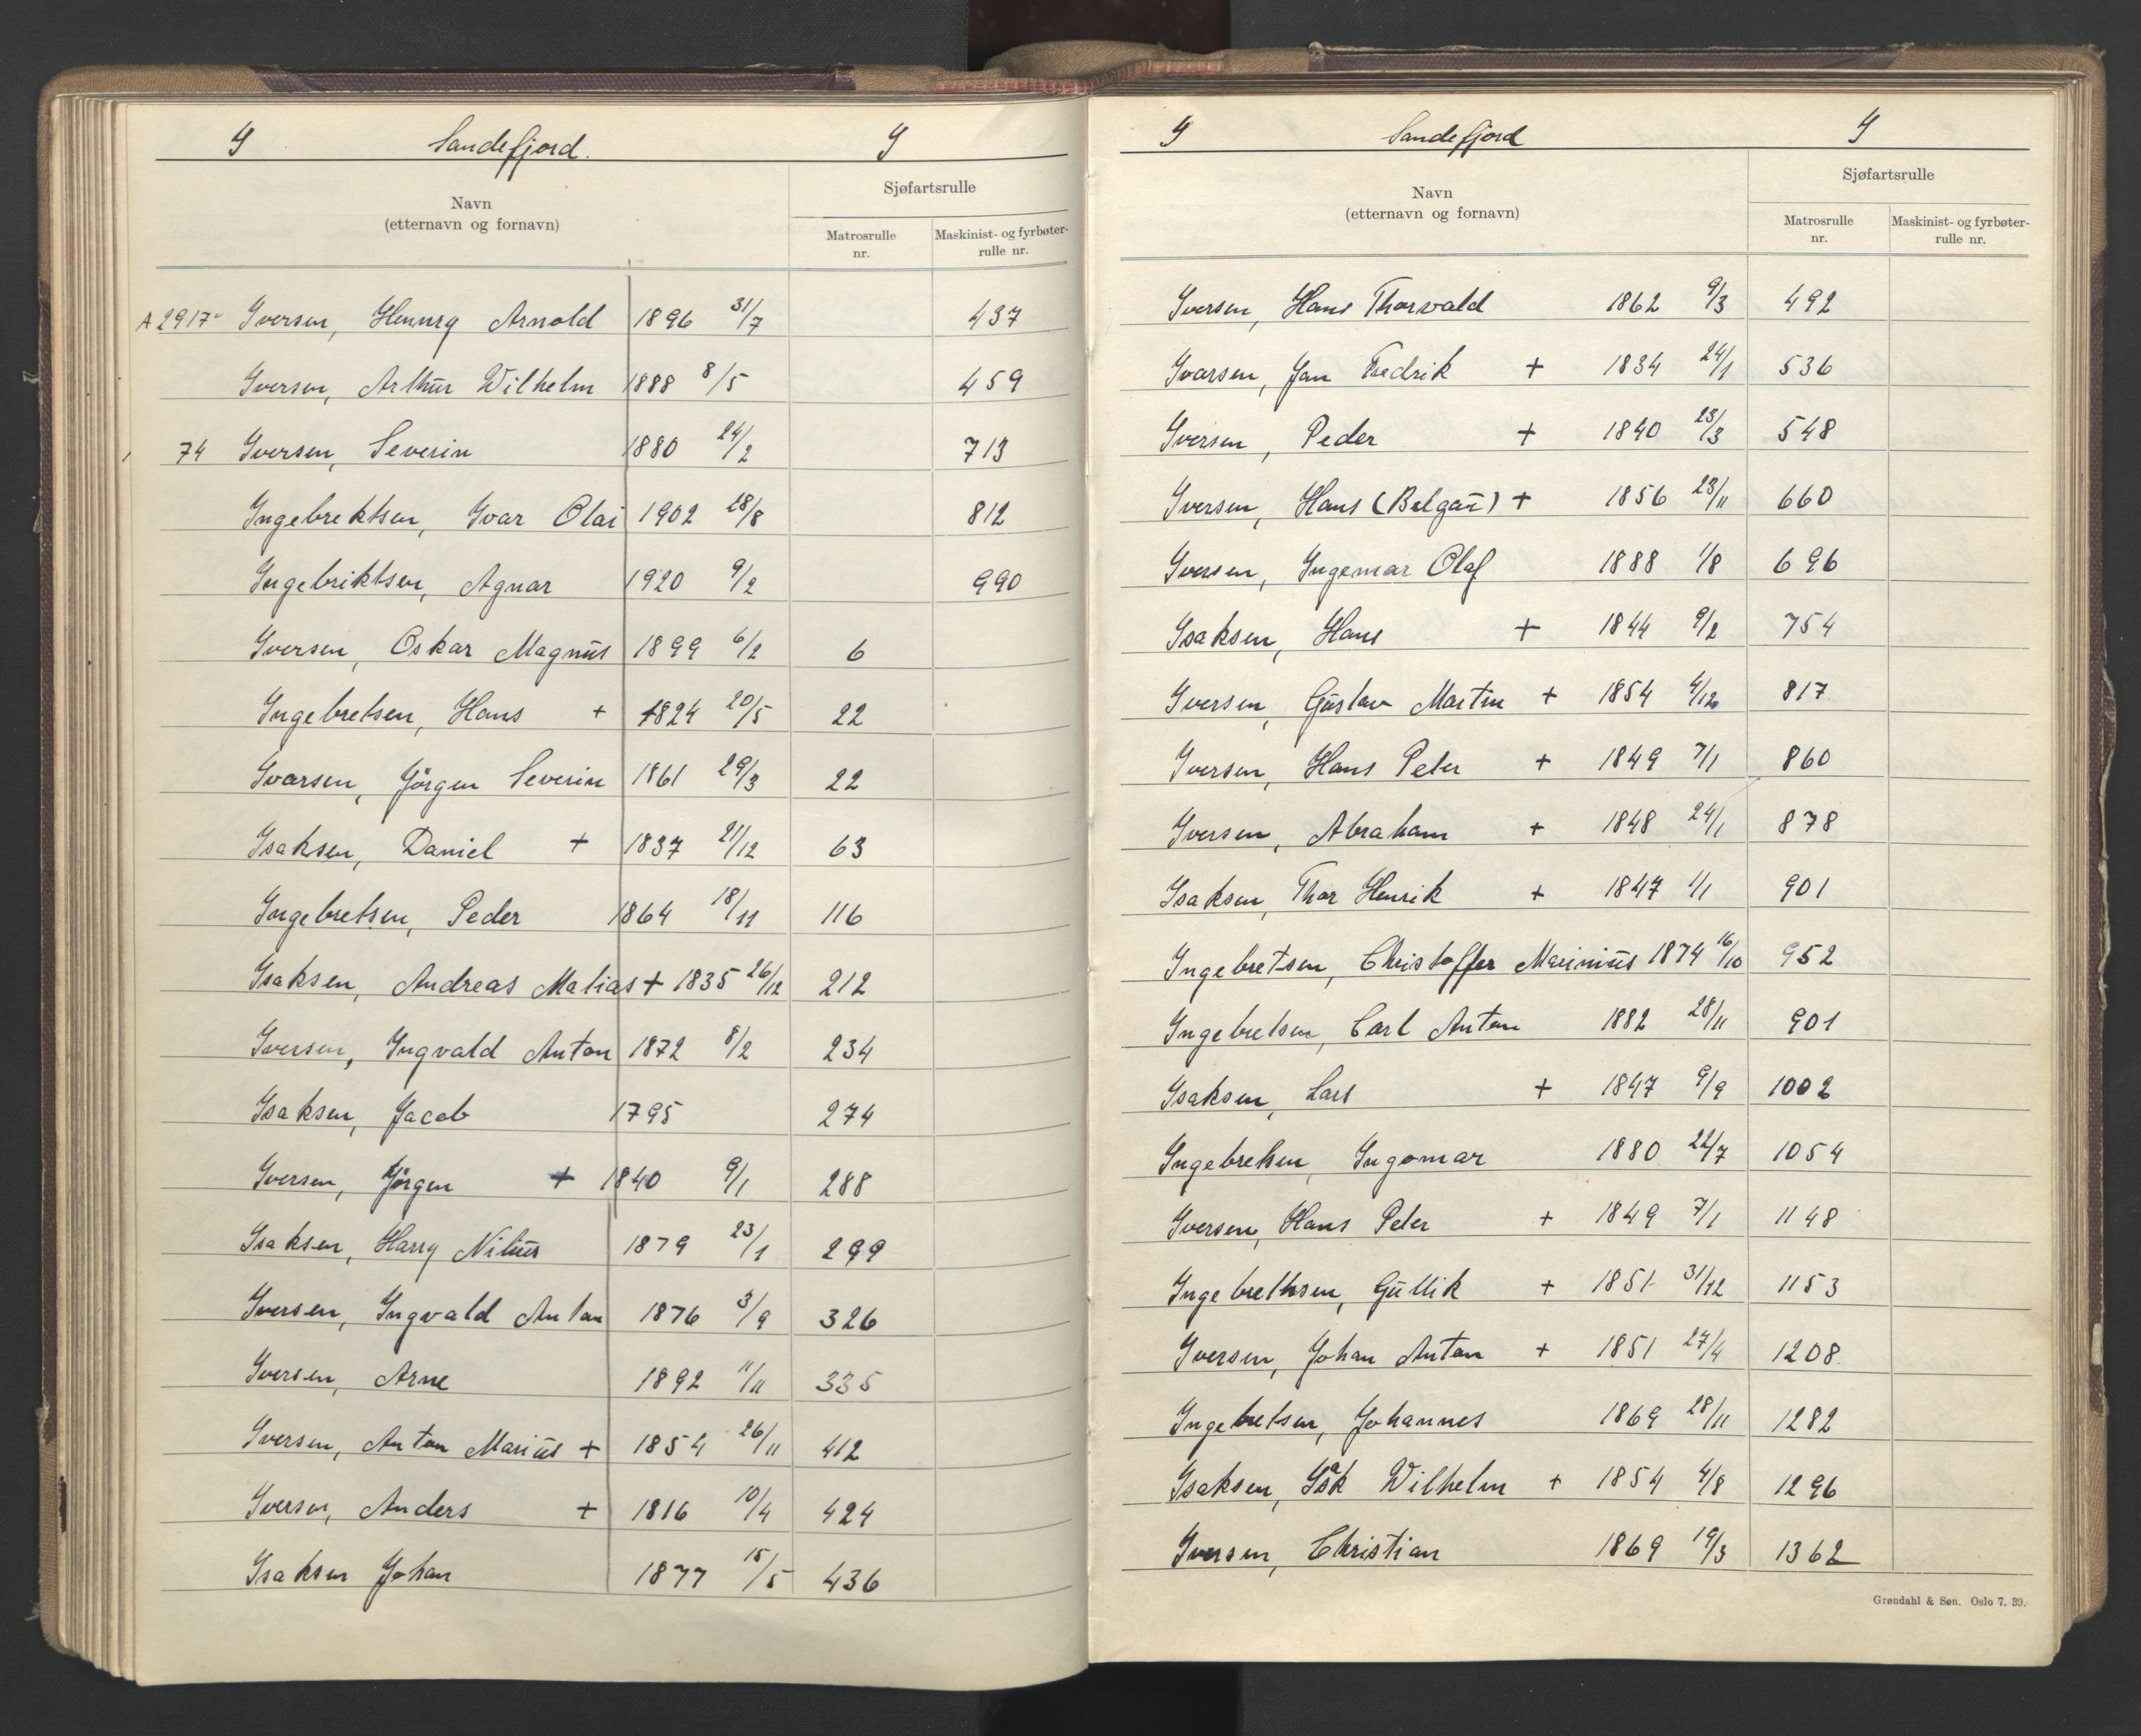 I Sandefjord. I
Navn
(etternavn og fornavn)
Sjøfartsrulle
Matrosrulle
nr.
Maskinist- og fyrbøter-
rulle nr.
A 2917 Iversen, Hennrg Arnold 1896 31/7 437
Iversen, Arthur Wilhelm 1888 8/5 459
74 Iversen, Severin 1880 24/2 713
Ingebrektsen, Ivar Olai 1902 28/8 812
Ingebriktsen, Agnar 1920 9/2 990
Iversen, Oskar Magnus 1899 6/2 6
Ingebretsen, Hans + 1824 20/5 22
Ivarsen, Jörgen Severin 1861 29/3 22
Isaksen, Daniel + 1837 21/12 63
Ingebretsen, Peder 1864 18/11 116
Isaksen, Andreas Matias + 1835 26/12 212
Iversen, Ingvald Anton 1872 8/2 234
Isaksen, Jacob 1795 274
Iversen, Jörgen + 1840 9/1 288
Isaksen, Harry Nilius 1879 23/1 299
Iversen, Ingvald Anton 1876 3/9 326
Iversen, Arne 1892 11/11 335
Iversen, Anton Marius + 1854 26/11 412
Iversen, Anders + 1816 10/4 424
Isaksen Johan 1877 15/5 436
I Sandefjord I
Navn
(etternavn og fornavn)
Sjøfartsrulle
Matrosrulle
nr.
Maskinist- og fyrbøter-
rulle nr.
Iversen, Hans Thorvald 1862 9/3 492
Ivarsen, Jan Fredrik + 1834 24/1 536
Iversen, Peder + 1840 23/3 548
Iversen, Hans (Belgau) + 1856 23/11 660
Iversen, Ingemar Olaf 1888 1/8 696
Isaksen, Hans + 1844 9/2 754
Iversen, Gustav Martin + 1854 4/12 817
Iversen, Hans Peter + 1849 7/1 860
Iversen, Abraham + 1848 24/1 878
Isaksen, Thor Henrik + 1847 1/1 901
Ingebretsen, Christoffer Marinius 1874 16/10 952
Ingebretsen, Carl Anton 1882 28/11 901
Isaksen, Lars + 1847 9/9 1002
Ingebretsen, Ingomar 1880 22/7 1054
Iversen, Hans Peter + 1849 7/1 1148
Ingebrethsen, Gullik + 1851 31/12 1153
Iversen, Johan Anton + 1851 27/4 1208
Ingebretsen, Johannes 1869 28/11 1282
Isaksen, Isak Wilhelm + 1854 4/8 1296
Iversen, Christian 1869 19/3 1362
Grøndahl & Søn. Oslo 7. 39.